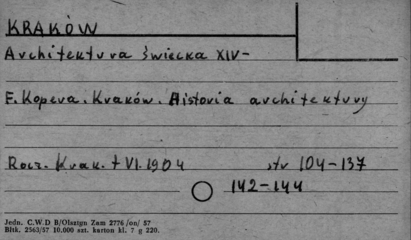 KRAKÓW
Architektura świecka XIV-
F. Kopera. Kraków. Historia architektury
Rocz. Krak. t VI. 1904 str 104-137
142-144
Jedn. C.W.D B/Olsztyn Zam 2776 /on/ 57
Bltk. 2563/57 10.000 szt. karton kl. 7 g 220.